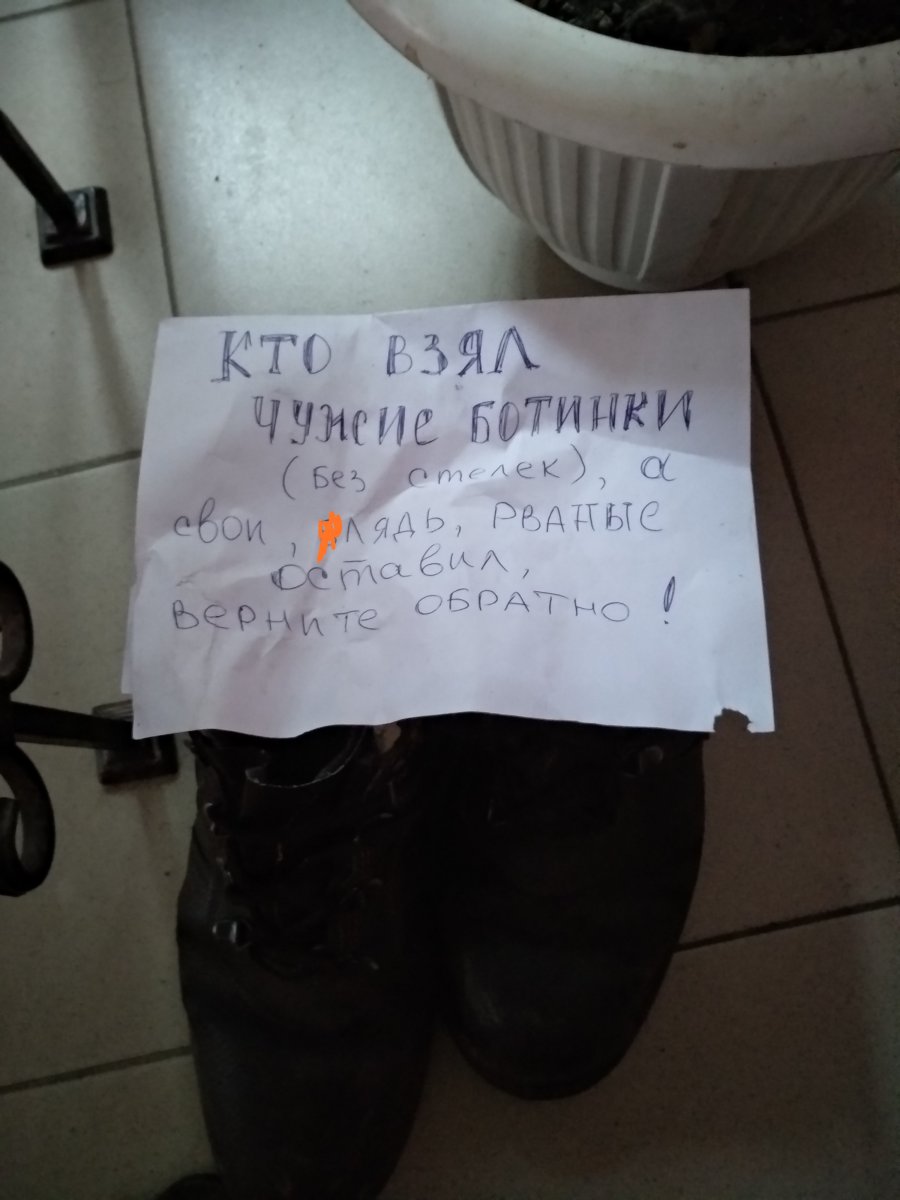 КТО ВЗЯЛ
ЧУЖИЕ БОТИНКИ
(без стелек), а
свои, лядь, РВАНЫЕ
оставил,
ВЕРНИТЕ ОБРАТНО!